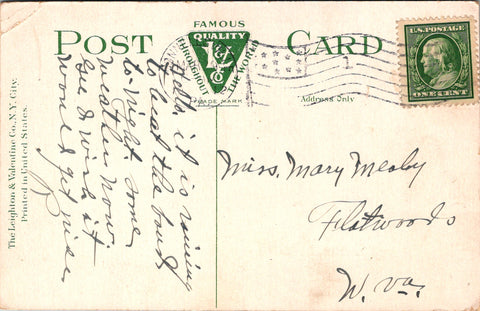 POST CARD
FAMOUS
QUALITY
THROUGHOUT THE WORLD
TRADE MARK
Address Only
U.S. POSTAGE
ONE CENT
1
The Leighton & Valentine Co. N.Y. City.
Printed in United States.
it is raining
to beat the band
to-night. Some
weather now.
gee I wish it
would get nice.
Miss. Mary Mealey
Flatwoods
W. Va.